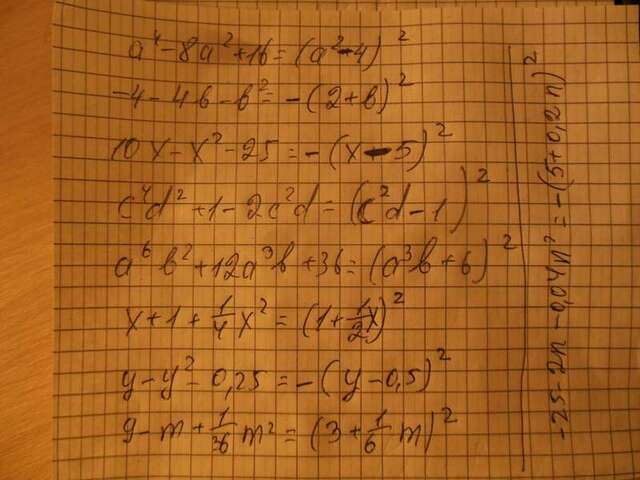 a⁴ - 8a² + 16 = (a² - 4)²
-4 - 4b - b² = -(2 + b)²
10x - x² - 25 = -(x - 5)²
c⁴d² + 1 - 2c²d = (c²d - 1)²
a⁶b² + 12a³b + 36 = (a³b + 6)²
x + 1 + 1/4 x² = (1 + 1/2 x)²
y - y² - 0,25 = -(y - 0,5)²
9 - m + 1/36 m² = (3 + 1/6 m)²
-25 - 2n - 0,04n² = -(5 + 0,2n)²